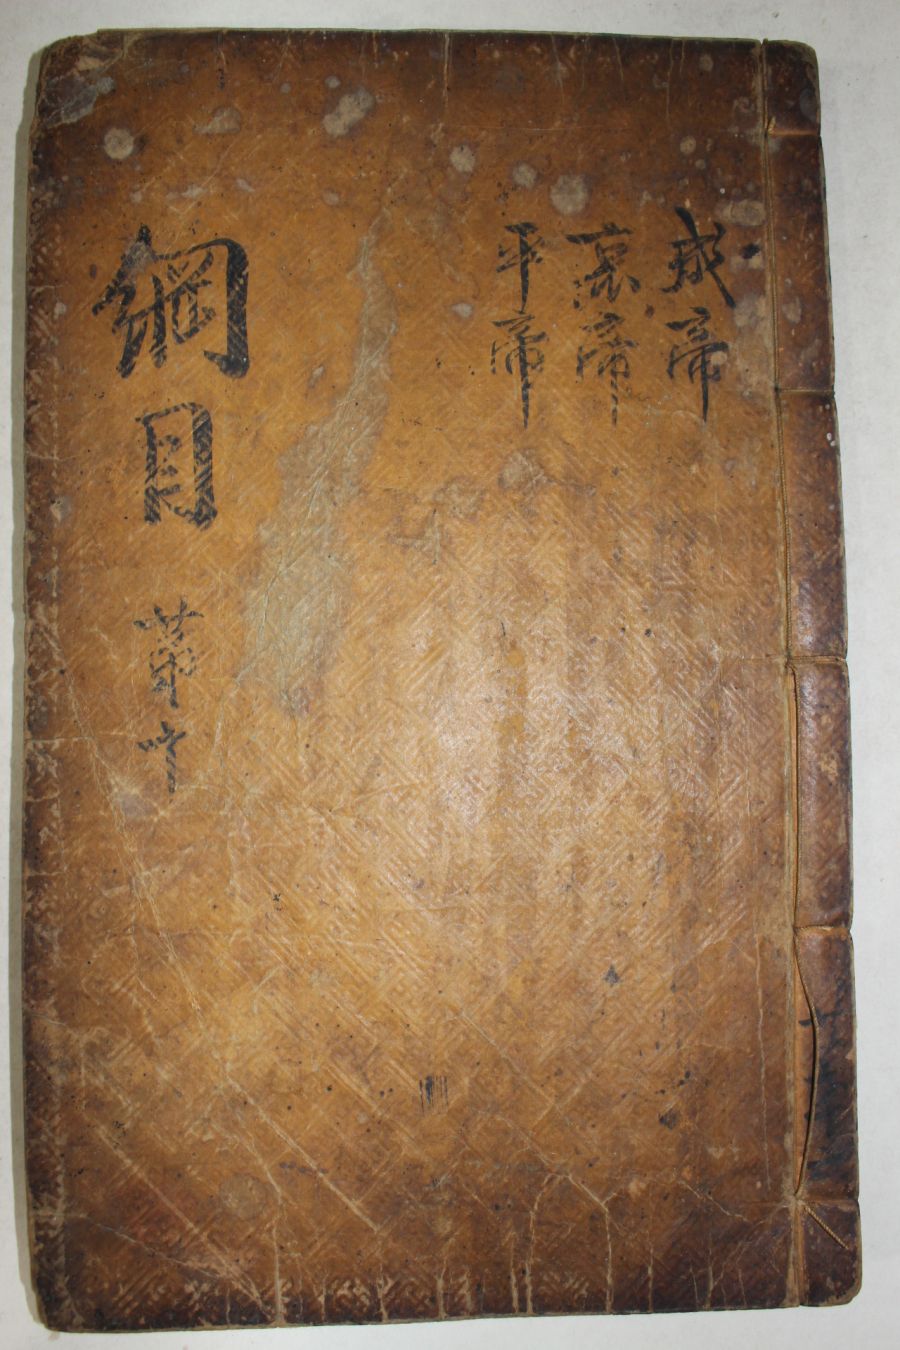 成帝
哀帝
平帝
綱目 苐十